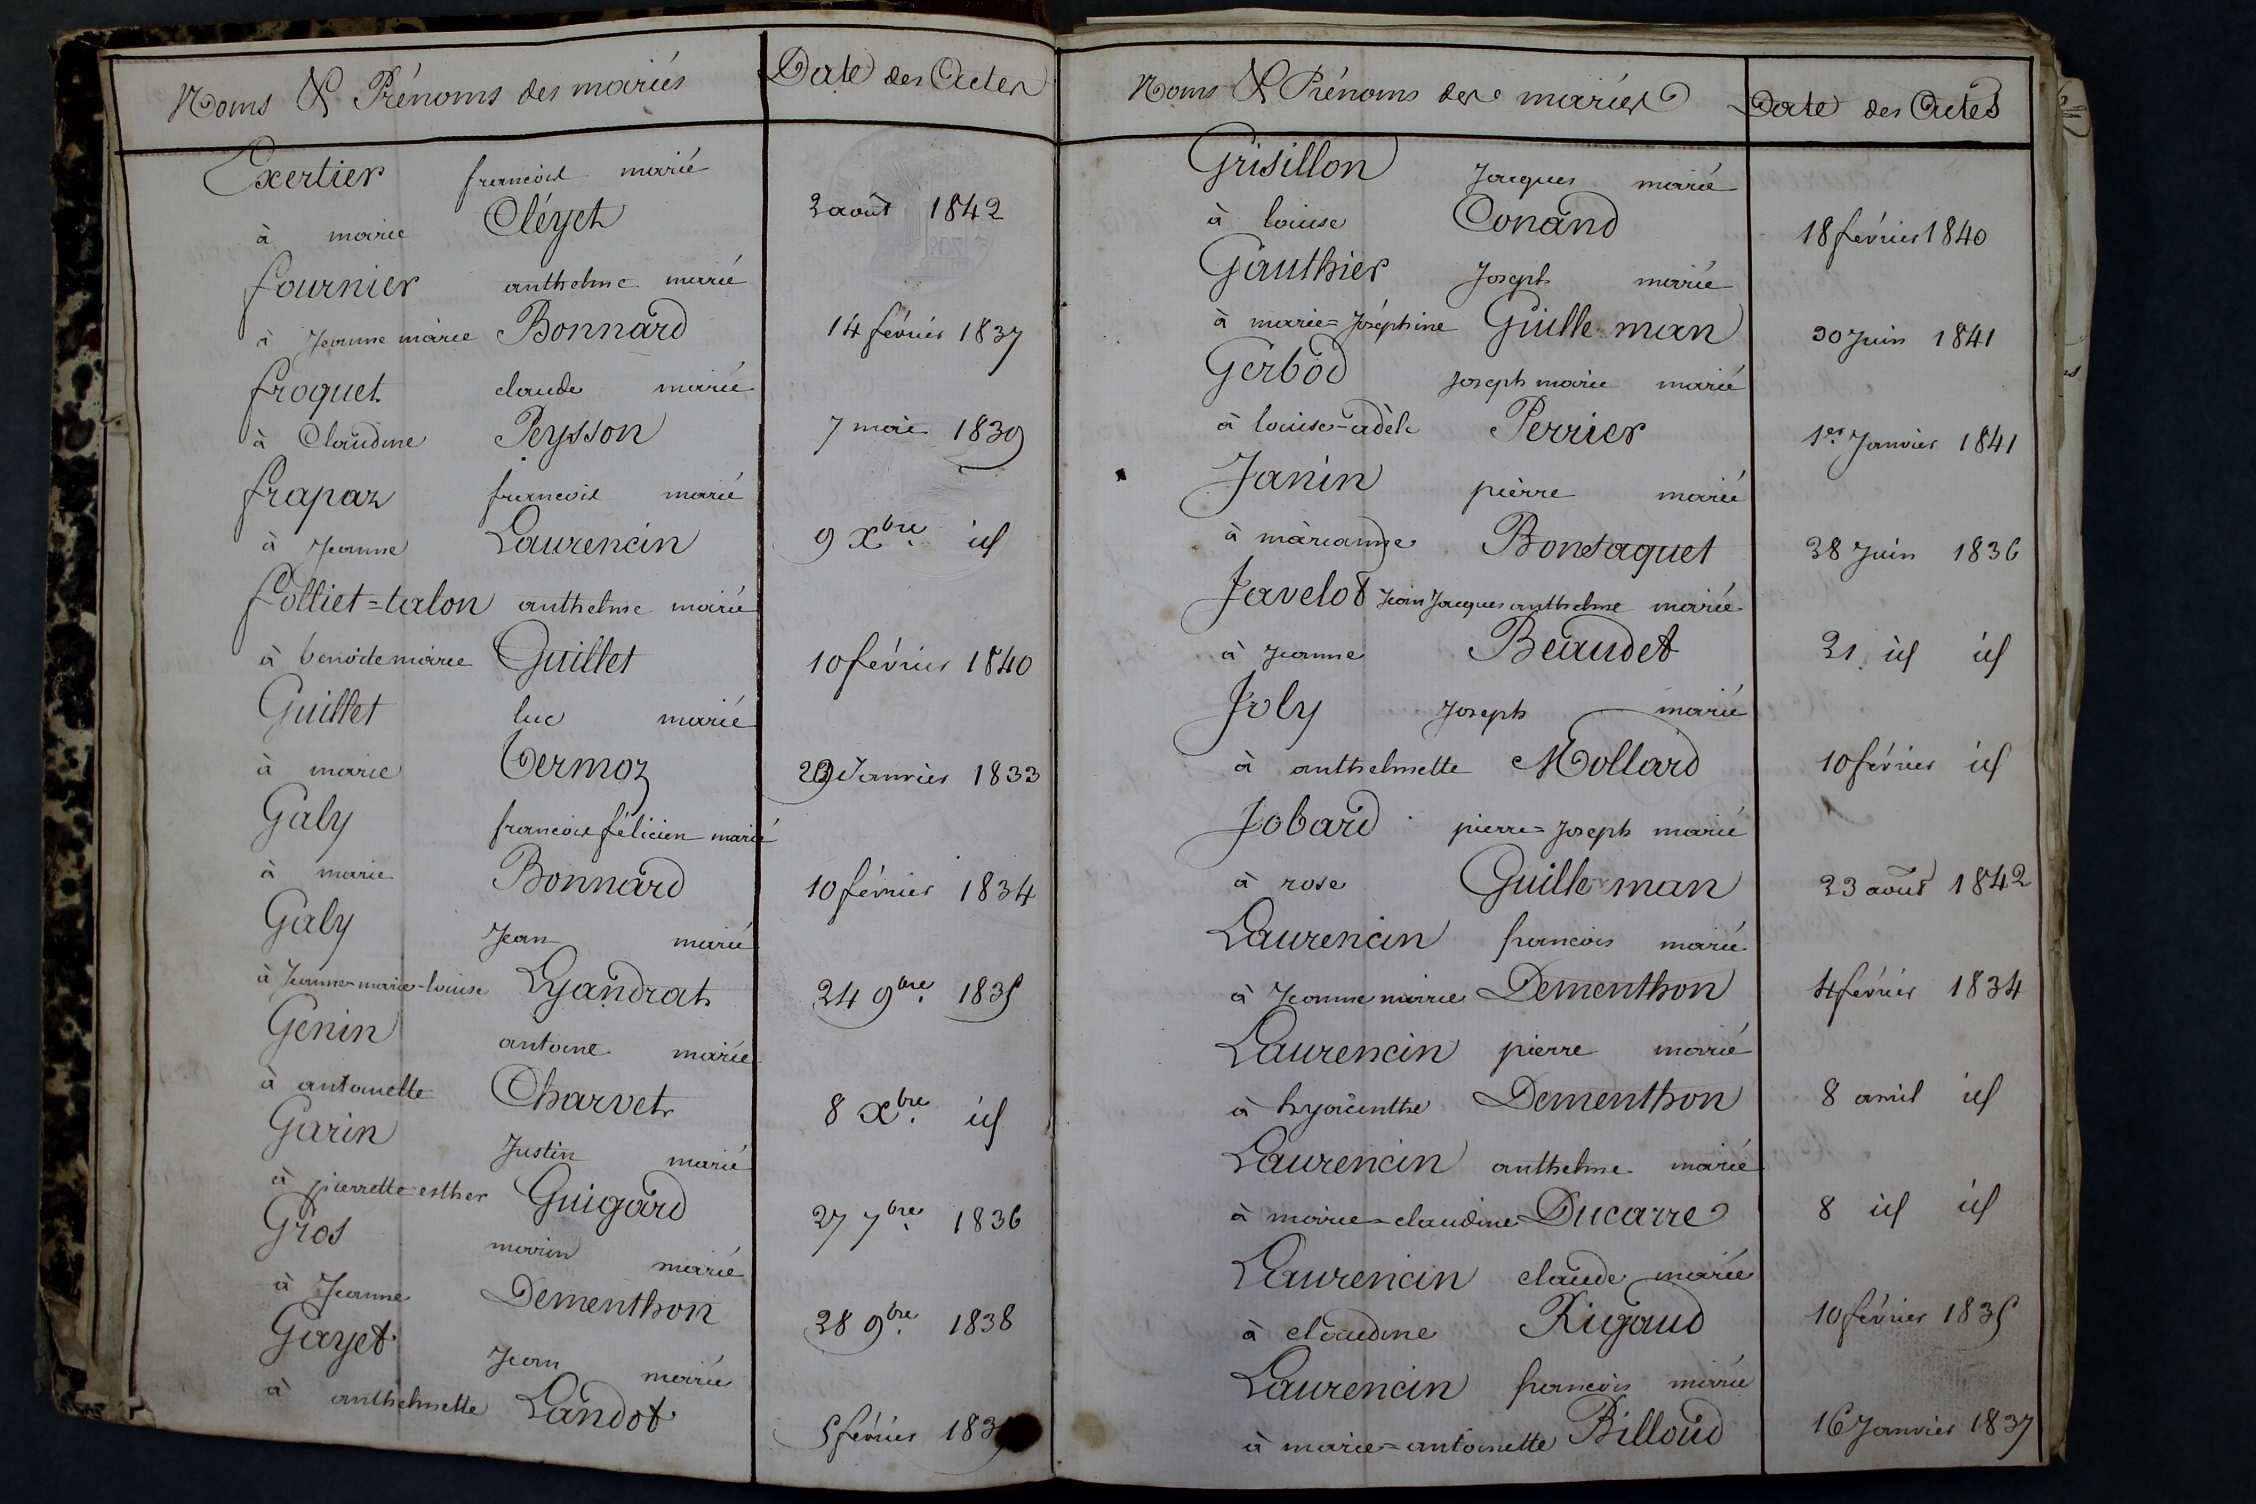 Noms & Prénoms des mariés Date des Actes
Exertier francois marié
à marie Cléyet 2 août 1842
fournier anthelme marié
à Jeanne marie Bonnard 14 février 1837
froquet claude marié
à Claudine Peysson 7 mai 1839
frapaz francois marié
à Jeanne Laurencin 9 Xbre id
folliet=talon anthelme marié
à benoite marie Guillet 10 février 1840
Guillet luc marié
à marie Vermoz 29 Janvier 1833
Galy francois félicien marié
à marie Bonnard 10 février 1834
Galy Jean marié
à Jeanne-marie-louise Lyandrat 24 9bre 1835
Genin antoine marié
à antoinette Charvet 8 Xbre id
Garin Justin marié
à pierrette esther Guigard 27 7bre 1836
Gros marin marié
à Jeanne Dementhon 28 9bre 1838
Gayet Jean marié
à anthelmette Landot 5 février
Noms & Prénoms des mariés Date des Actes
Grisillon Jacques marié
à louise Conand 18 février 1840
Gauthier Joseph marié
à marie=Joséphine Guilleman 30 Juin 1841
Gerbod Joseph marie marié
à louise-adèle Perrier 1er Janvier 1841
Janin pierre marié
à marianne Bontaquet 28 Juin 1836
Javelot Jean Jacques anthelme marié
à Jeanne Beaudet 21 id id
Joly Joseph marié
à anthelmette Mollard 10 février id
Jobard pierre=Joseph marié
à rose Guilleman 23 août 1842
Laurencin francois marié
à Jeanne marie Dementhon 4 février 1834
Laurencin pierre marié
à hyacinthe Dementhon 8 avril id
Laurencin anthelme marié
à marie=claudine Ducarre 8 id id
Laurencin claude marié
à claudine Rigaud 10 février 1835
Laurencin francois marié
à marie=antoinette Billoud 16 Janvier 1837